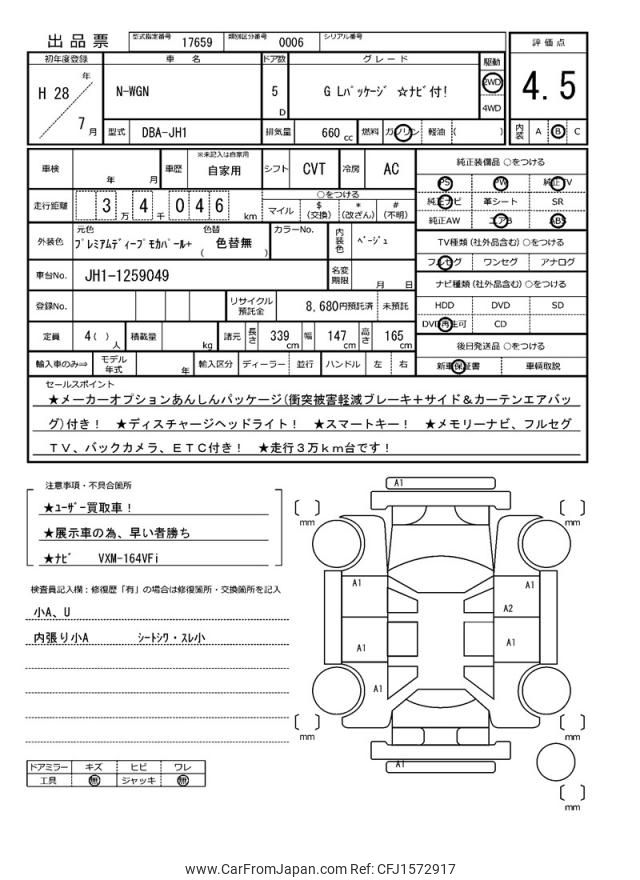 出品票 型式指定番号 17659 類別区分番号 0006 シリアル番号
初年度登録 車名 ドア数 グレード 駆動 評価点
H 28 年 7 月 N-WGN 5 D G Lﾊﾟｯｹｰｼﾞ ☆ﾅﾋﾞ付! 2WD 4WD 4.5
型式 DBA-JH1 排気量 660 cc 燃料 ガソリン 軽油 ( ) 内装 A B C
車検 年 月 車歴 ※未記入は自家用 自家用 シフト CVT 冷房 AC
走行距離 3 万 4 千 0 4 6 km ○をつける マイル $ (交換) * (改ざん) # (不明)
外装色 元色 ﾌﾟﾚﾐｱﾑﾃﾞｨｰﾌﾟﾓｶﾊﾟｰﾙ+ 色替 ( 色替無 ) カラーNo. 内装色 ﾍﾞｰｼﾞｭ
車台No. JH1-1259049 名変期限 月 日
登録No. リサイクル預託金 8,680円預託済 未預託
定員 4( ) 人 積載量 kg 諸元 長さ 339 cm 幅 147 cm 高さ 165 cm
輸入車のみ⇒ モデル年式 年 輸入区分 ディーラー 並行 ハンドル 左 右
純正装備品 ○をつける
PS PW 純正TV
純正ナビ 革シート SR
純正AW エアB ABS
TV種類(社外品含む) ○をつける
フルセグ ワンセグ アナログ
ナビ種類(社外品含む) ○をつける
HDD DVD SD
DVD再生可 CD
後日発送品 ○をつける
新車保証書 車輌取説
セールスポイント
★メーカーオプションあんしんパッケージ(衝突被害軽減ブレーキ＋サイド＆カーテンエアバッ
グ)付き！ ★ディスチャージヘッドライト！ ★スマートキー！ ★メモリーナビ、フルセグ
ＴＶ、バックカメラ、ＥＴＣ付き！ ★走行３万ｋｍ台です！
注意事項・不具合箇所
★ﾕｰｻﾞｰ買取車！
★展示車の為、早い者勝ち
★ﾅﾋﾞ VXM-164VFi
検査員記入欄：修復歴「有」の場合は修復箇所・交換箇所を記入
小A、U
内張り小A ｼｰﾄｼﾜ・ｽﾚ小
ドアミラー キズ ヒビ ワレ
工具 無 ジャッキ 無
A1
mm mm
A1
A2
A1 A1
A1
mm mm
A1
mm
www.CarFromJapan.com Ref: CFJ1572917